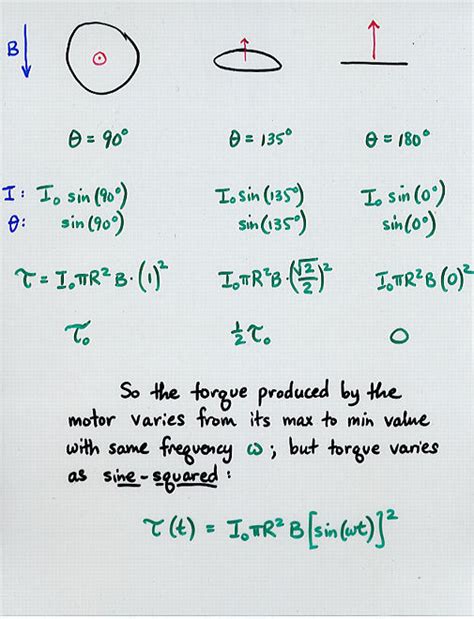 B
θ = 90° θ = 135° θ = 180°
I: I₀ sin(90°) I₀ sin(135°) I₀ sin(0°)
θ: sin(90°) sin(135°) sin(0°)
τ = I₀πR²B·(1)² I₀πR²B·(√2/2)² I₀πR²B(0)²
τ₀ ½τ₀ 0
So the torque produced by the
motor varies from its max to min value
with same frequency ω; but torque varies
as sine-squared:
τ(t) = I₀πR²B[sin(ωt)]²